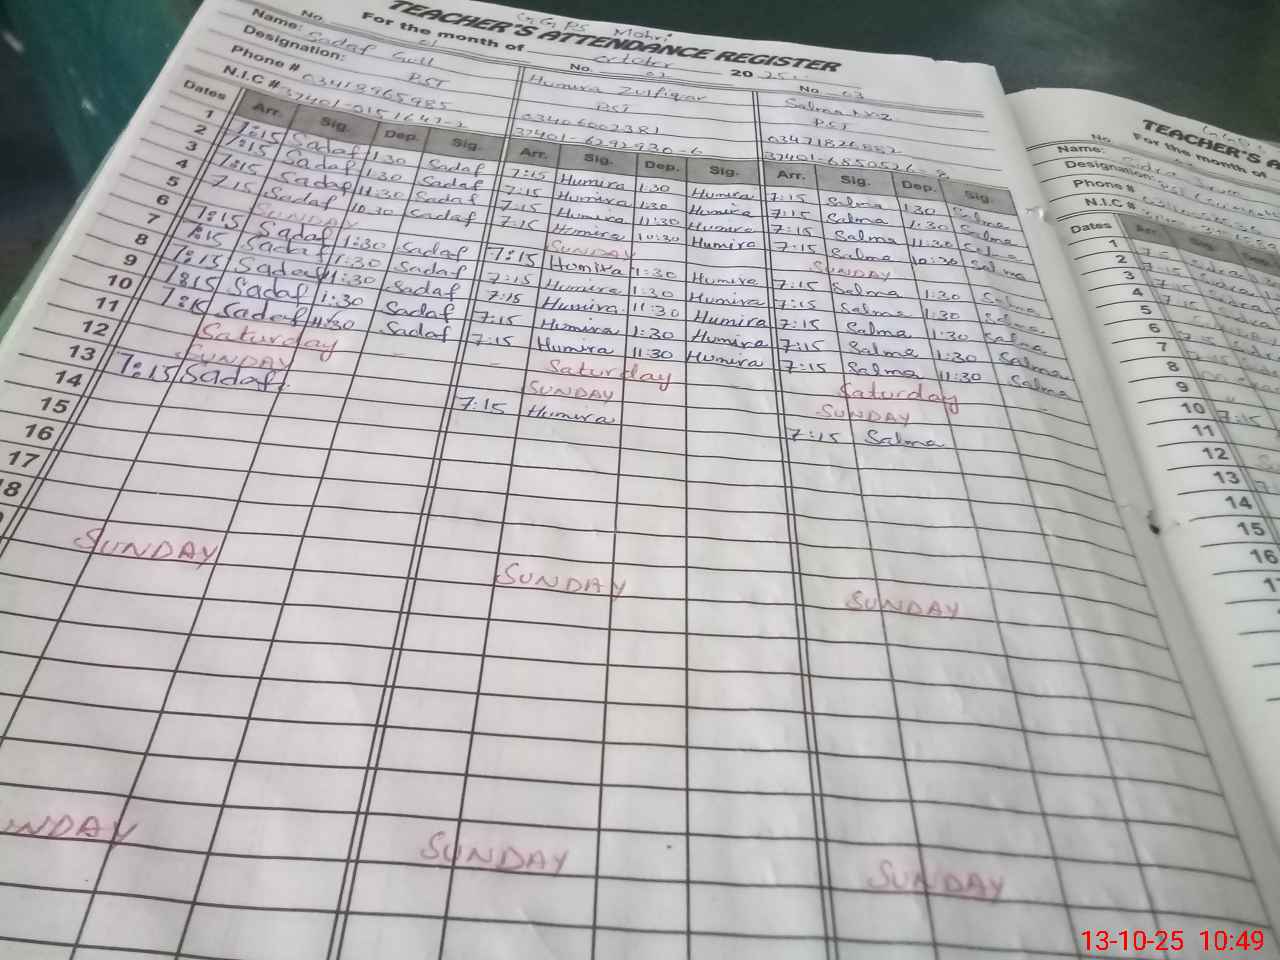 GGPS Mohri
TEACHER'S ATTENDANCE REGISTER
For the month of October 2025
No. 01 No. 02 No. 03
Name: Sadaf Gull Humira Zulfiqar Salma
Designation: PST PST PST
Phone # 03418965985 03406602381
N.I.C # 37401-0151642-2 37401-6292930-6
Dates Arr. Sig. Dep. Sig. Arr. Sig. Dep. Sig. Arr. Sig. Dep. Sig.
1 7:15 Sadaf 1:30 Sadaf 7:15 Humira 1:30 Humira 7:15 Salma 1:30 Salma
2 7:15 Sadaf 1:30 Sadaf 7:15 Humira 1:30 Humira 7:15 Salma 1:30 Salma
3 7:15 Sadaf 11:30 Sadaf 7:15 Humira 11:30 Humira 7:15 Salma 11:30 Salma
4 7:15 Sadaf 10:30 Sadaf 7:15 Humira 10:30 Humira 7:15 Salma 10:30 Salma
5 SUNDAY SUNDAY SUNDAY
6 7:15 Sadaf 1:30 Sadaf 7:15 Humira 1:30 Humira 7:15 Salma 1:30 Salma
7 7:15 Sadaf 1:30 Sadaf 7:15 Humira 1:30 Humira 7:15 Salma 1:30 Salma
8 7:15 Sadaf 11:30 Sadaf 7:15 Humira 11:30 Humira 7:15 Salma 1:30 Salma
9 7:15 Sadaf 1:30 Sadaf 7:15 Humira 1:30 Humira 7:15 Salma 1:30 Salma
10 7:15 Sadaf 11:30 Sadaf 7:15 Humira 11:30 Humira 7:15 Salma 11:30 Salma
11 Saturday Saturday Saturday
12 SUNDAY SUNDAY SUNDAY
13 7:15 Sadaf 7:15 Humira 7:15 Salma
14
15
16
17
18
SUNDAY SUNDAY SUNDAY
NDAY SUNDAY SUNDAY
TEACHER'S A
For the month of
No.
Name: Sidra
Designation:
Phone #
N.I.C #
Dates Arr. Sig.
1
2
3
4
5
6
7
8
9
10 7:15
11
12
13
14
15
16
13-10-25 10:49